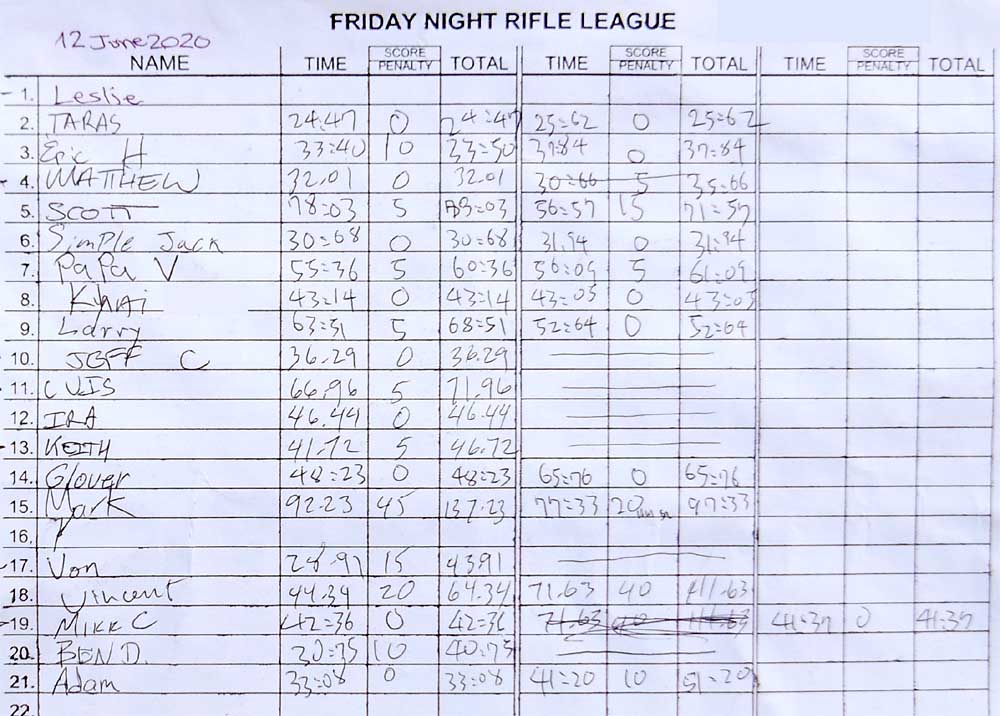 FRIDAY NIGHT RIFLE LEAGUE
12 June 2020
NAME TIME SCORE PENALTY TOTAL TIME SCORE PENALTY TOTAL TIME SCORE PENALTY TOTAL
1. Leslie
2. TARAS 24.47 0 24:47 25:62 0 25:62
3. Eric H 33:40 10 33:50 37:84 0 37:84
4. MATTHEW 32.01 0 32.01 30:66 5 35:66
5. SCOTT 78:03 5 83:03 56:57 15 71:57
6. Simple Jack 30:68 0 30:68 31.94 0 31:94
7. PaPa V 55:36 5 60:36 56:09 5 61:09
8. Khai 43:14 0 43:14 43:05 0 43:05
9. Larry 63:51 5 68:51 52:64 0 52:64
10. JEFF C 36.29 0 36.29
11. LUIS 66.96 5 71.96
12. IRA 46.44 0 46.44
13. KEITH 41.72 5 46.72
14. Glover 48:23 0 48:23 65:76 0 65:76
15. Mark 92.23 45 137.23 77:33 20 97:33
16.
17. Von 28.91 15 4391
18. Vincent 44.34 20 64.34 71.63 40 111.63
19. MIKE C 42:36 0 42:36 71.63 40 111.63 41:37 0 41:37
20. BEN D. 30:75 10 40:75
21. Adam 33:08 0 33:08 41:20 10 51:20
22.